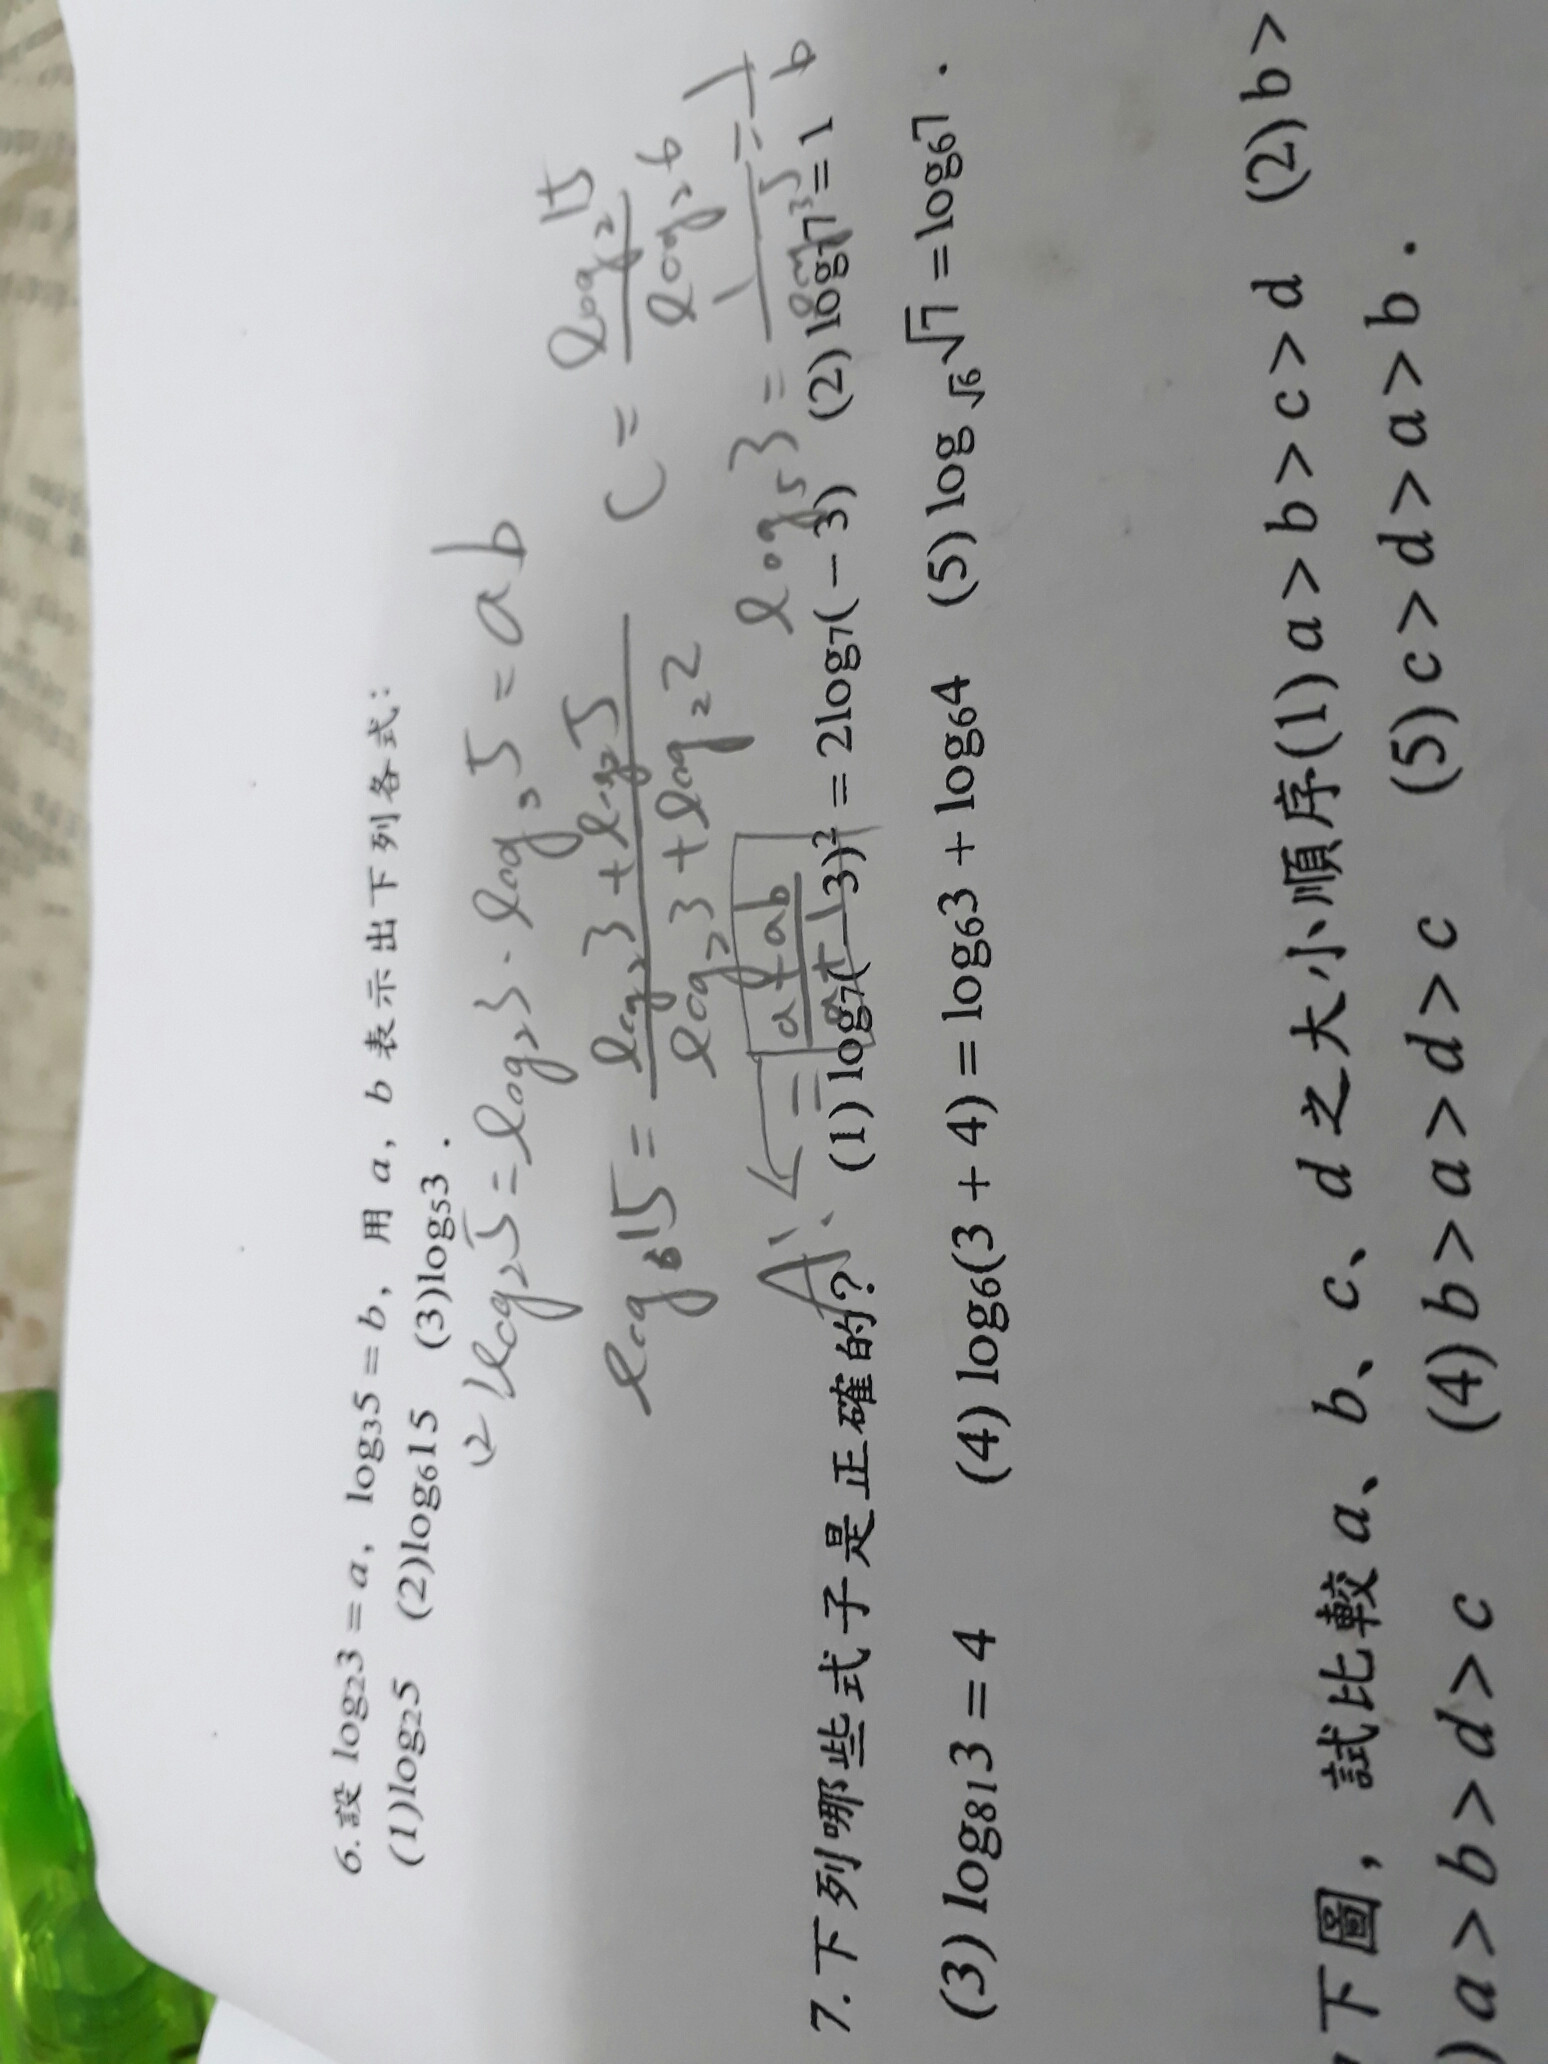 6.設 log₂3=a, log₃5=b, 用 a, b 表示出下列各式:
(1)log₂5 (2)log₆15 (3)log₅3.
log₂5=log₂3·log₃5=ab
log₆15=(log₂3+log₂5)/(log₂3+log₂2) (=log₂15/log₂6
=(a+ab)/(a+1) log₅3=1/log₃5=1/b
7.下列哪些式子是正確的? (1) log₇(-3)²=2log₇(-3) (2) log₇7=1
(3) log₈₁3=4 (4) log₆(3+4)=log₆3+log₆4 (5) log √6 √7=log₆7.
下圖, 試比較 a、b、c、d 之大小順序(1)a>b>c>d (2)b>
)a>b>d>c (4)b>a>d>c (5)c>d>a>b.